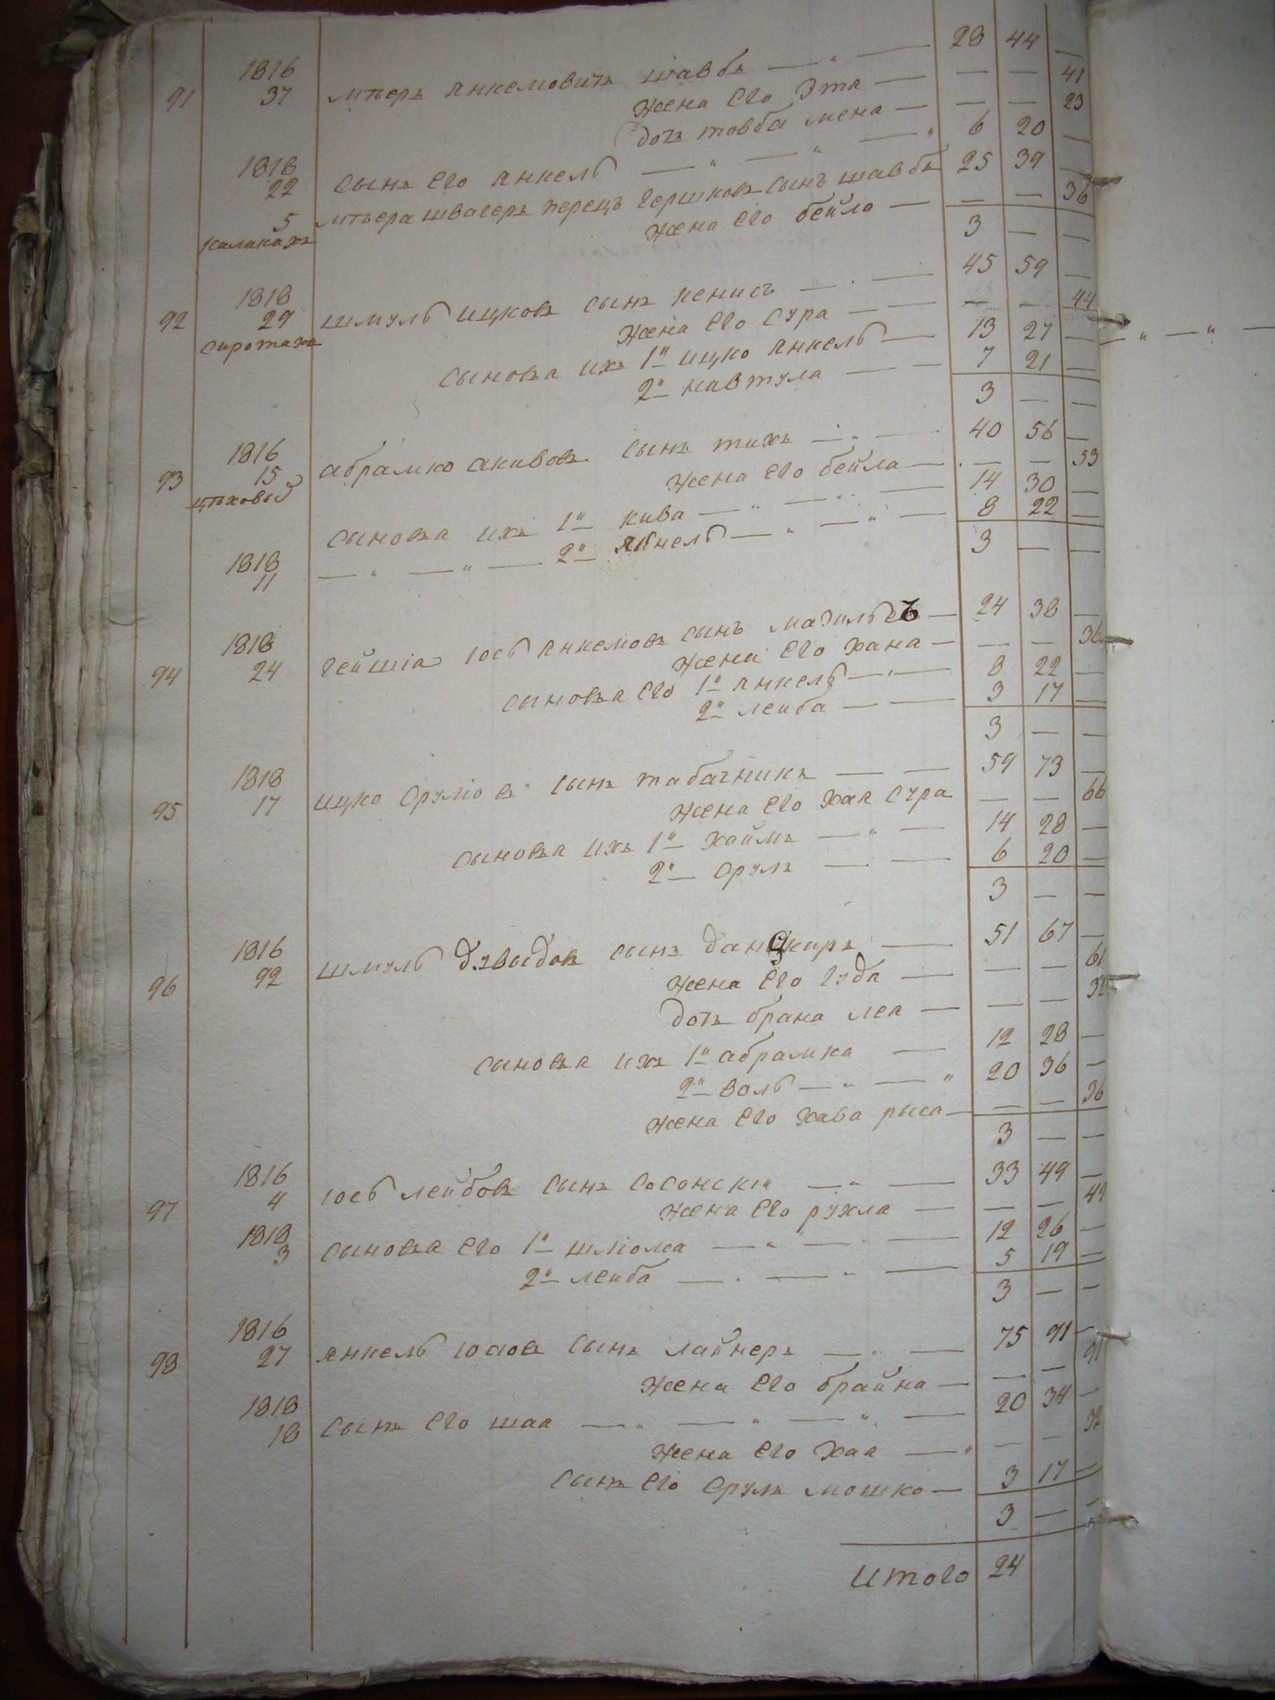 1816 28 44 —
91 37 Мѣеръ Анкемовичъ шавбъ — „ —
жена его Эта — — — 41
дочь товба мена — — — 23
1818 6 20 —
22 сынъ его Анкель — „ — „ — „
5 Мѣера швагеръ перецъ Гершковъ сынъ шавбъ 25 39 —
каликахъ жена его бейла — — — 36
3 — —
1818 45 59 —
92 29 шмуль ицковъ сынъ пенисъ — . —
сиротахъ жена его сура — — — 44
сыновья ихъ 1й ицко Анкель — 13 27 —
2й навтула — — 7 21 —
3 — —
1816 40 56 —
93 15 абрамко акивовъ сынъ тихъ — „ —
цѣховой жена его бейла — — — 53
сыновья ихъ 1й кива — „ — „ — 14 30 —
1818 — „ — „ — 2й Якнель — „ — „ — 8 22 —
11 3 — —
1818 24 38 —
94 24 гейшіа юсь Анкемовъ сынъ —
жена его хана — — — 36
сыновья его 1й Анкель — „ — 8 22 —
2й лейба — — 3 17 —
3 — —
1818 59 73 —
95 17 ицко срулiовъ сынъ табачникъ — —
жена его хая сура — — 66
сыновья ихъ 1й хаимъ — „ — 14 28 —
2й срулъ — — 6 20 —
3 — —
1816 51 67 —
96 92 шмуль дувыдовъ сынъ —
жена его гуда — — — 61
дочь брана леа — — — 32
сыновья ихъ 1й абрамка — 12 28 —
2й воль — „ — „ 20 36 —
жена его хава рыса — — — 36
3 — —
1816 33 49 —
97 4 юсь лейбовъ сынъ сосонскiй — „ —
жена его рухла — — — 49
1818 12 26 —
3 сыновья его 1й шліома — „ — . —
2й лейба — . — „ — 5 19 —
3 — —
1816 75 91 —
98 27 Янкель юсiовъ сынъ лайнеръ — „ —
жена его брайна — — — 91
1818 20 34 —
18 сынъ его шая — „ — „ — „ —
жена его хая — „ — — 32
сынъ его срулъ мошко — 3 17 —
3 — —
Итого 24